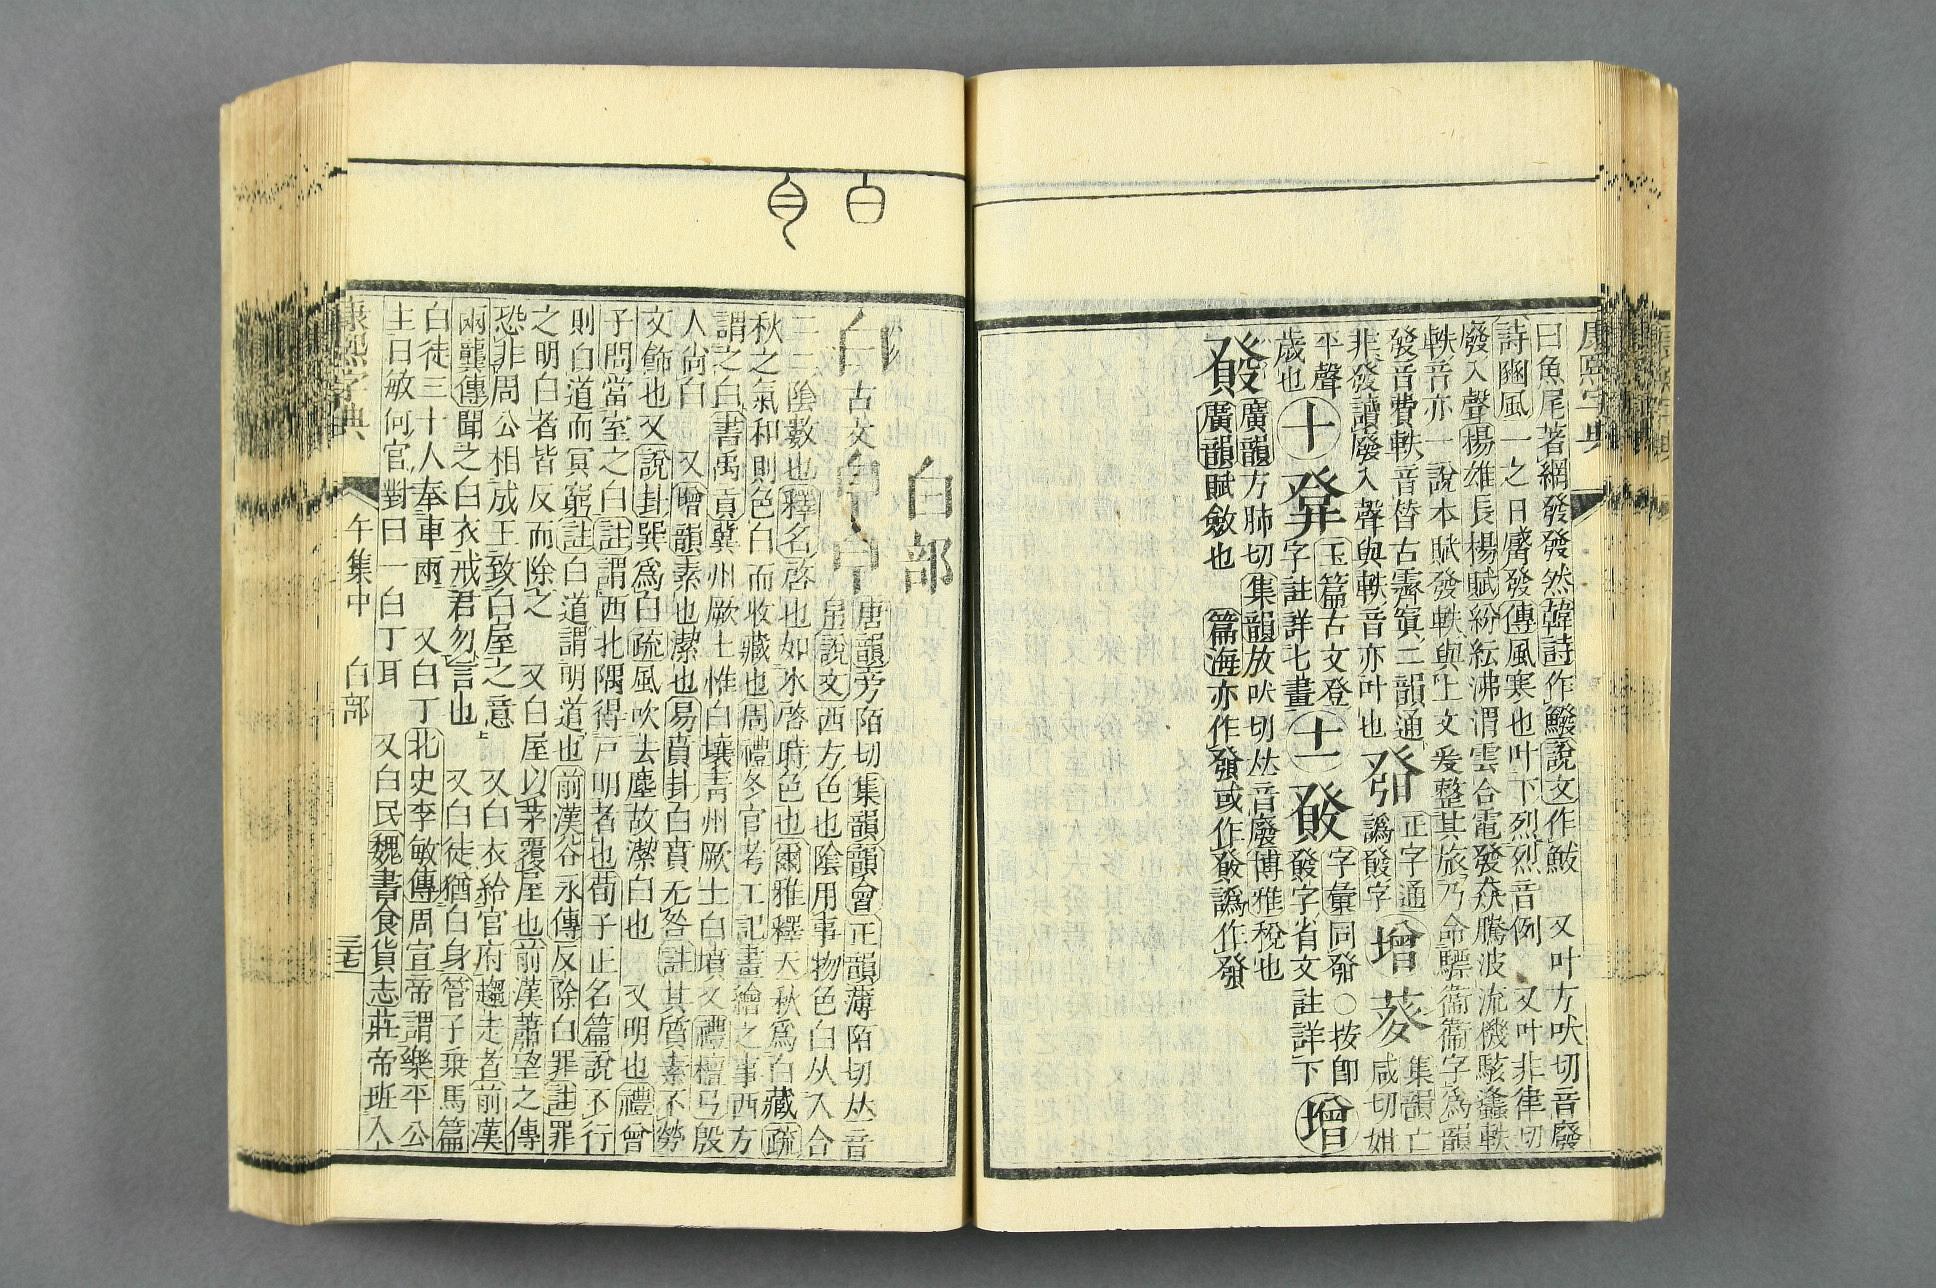 康熙字典
曰魚尾著網發發然韓詩作鱍說文作鮁　又叶方吠切音廢
詩豳風一之日觱發傳風寒也叶下烈烈音例　又叶非律切
廢入聲揚雄長楊賦紛紜沸渭雲合電發猋騰波流機駭蠭軼
軼音亦一說本賦發軼與上文爰整其旅乃命驃衞衞字爲韻
發音費軼音替古霽寘二韻通
非發讀廢入聲與軼音亦叶也
發
譌發字
正字通
增
葼
集韻亡
咸切姏
平聲
歲也
十
登
玉篇古文登
字註詳七畫
十一
發
字彙同發○按卽
發字省文註詳下
增
廣韻方肺切集韻放吠切𠀤音廢博雅稅也
廣韻賦斂也　篇海亦作發或作發譌作發
白
𦣹
白部
白
古文
唐韻旁陌切集韻韻會正韻薄陌切𠀤音
帛說文西方色也陰用事物色白从入合
二二陰數也釋名啓也如冰啓時色也爾雅釋天秋爲白藏疏
秋之氣和則色白而收藏也周禮冬官考工記畫繪之事西方
謂之白書禹貢冀州厥土惟白壤靑州厥土白墳又禮檀弓殷
人尙白　又增韻素也潔也易賁卦白賁无咎註其質素不勞
文飾也又說卦巽爲白疏風吹去塵故潔白也　又明也禮曾
子問當室之白註謂西北隅得戸明者也荀子正名篇說不行
則白道而冥窮註白道謂明道也前漢谷永傳反除白罪註罪
之明白者皆反而除之　又白屋以茅覆屋也前漢蕭望之傳
恐非周公相成王致白屋之意　又白衣給官府趨走者前漢
兩龔傳聞之白衣戒君勿言也　又白徒猶白身管子乗馬篇
白徒三十人奉車兩　又白丁北史李敏傳周宣帝謂樂平公
主曰敏何官對曰一白丁耳　又白民魏書食貨志莊帝班入
康熙字典
午集中　白部
三七